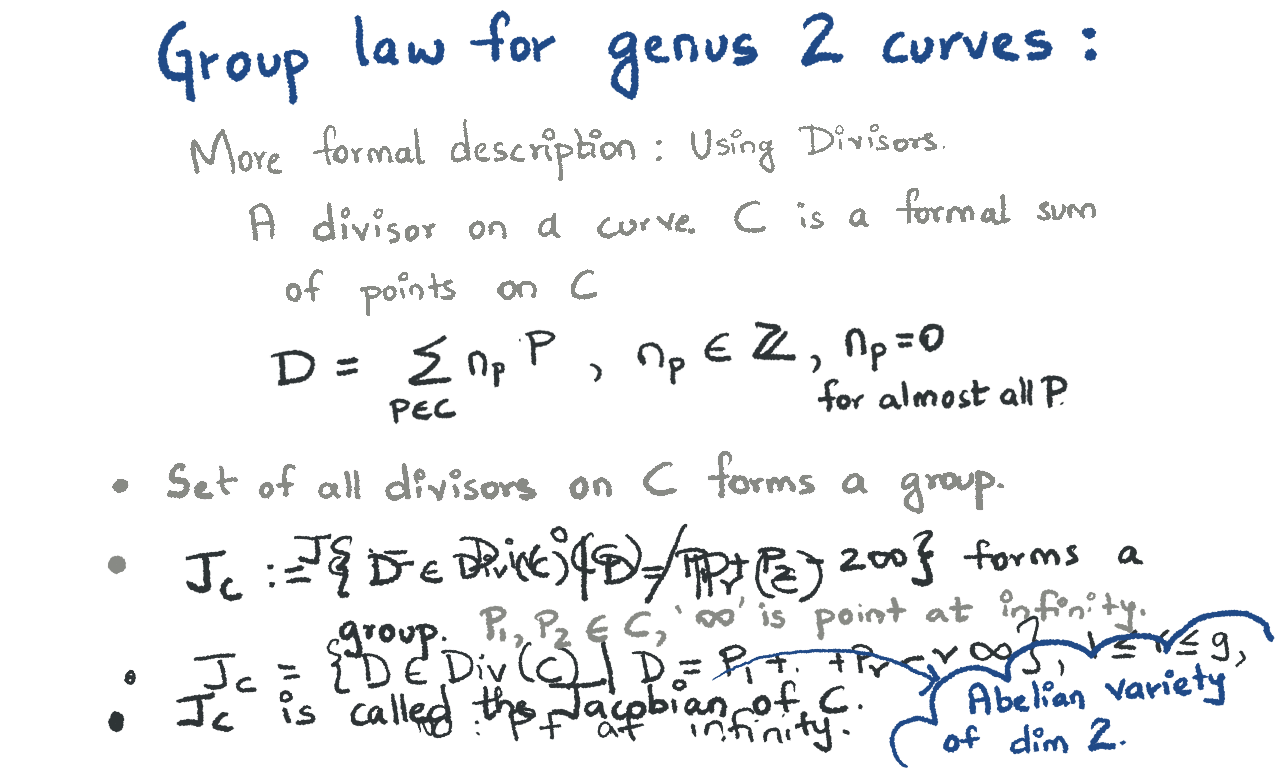 Group law for genus 2 curves :
More formal description : Using Divisors.
A divisor on a curve C is a formal sum
of points on C
D = ∑ n_P P , n_P ∈ ℤ, n_P = 0
P∈C
for almost all P
• Set of all divisors on C forms a group.
• J_C := { D ∈ Div(C) | D = P_1 + P_2 - 2∞} forms a
group. P_1, P_2 ∈ C, '∞' is point at infinity.
• J_C = { D ∈ Div(C) | D = P_1 + .. + P_r - r ∞ }, 1 ≤ r ≤ g,
∞ : pt at infinity.
• J_C is called the Jacobian of C.
Abelian variety
of dim 2.